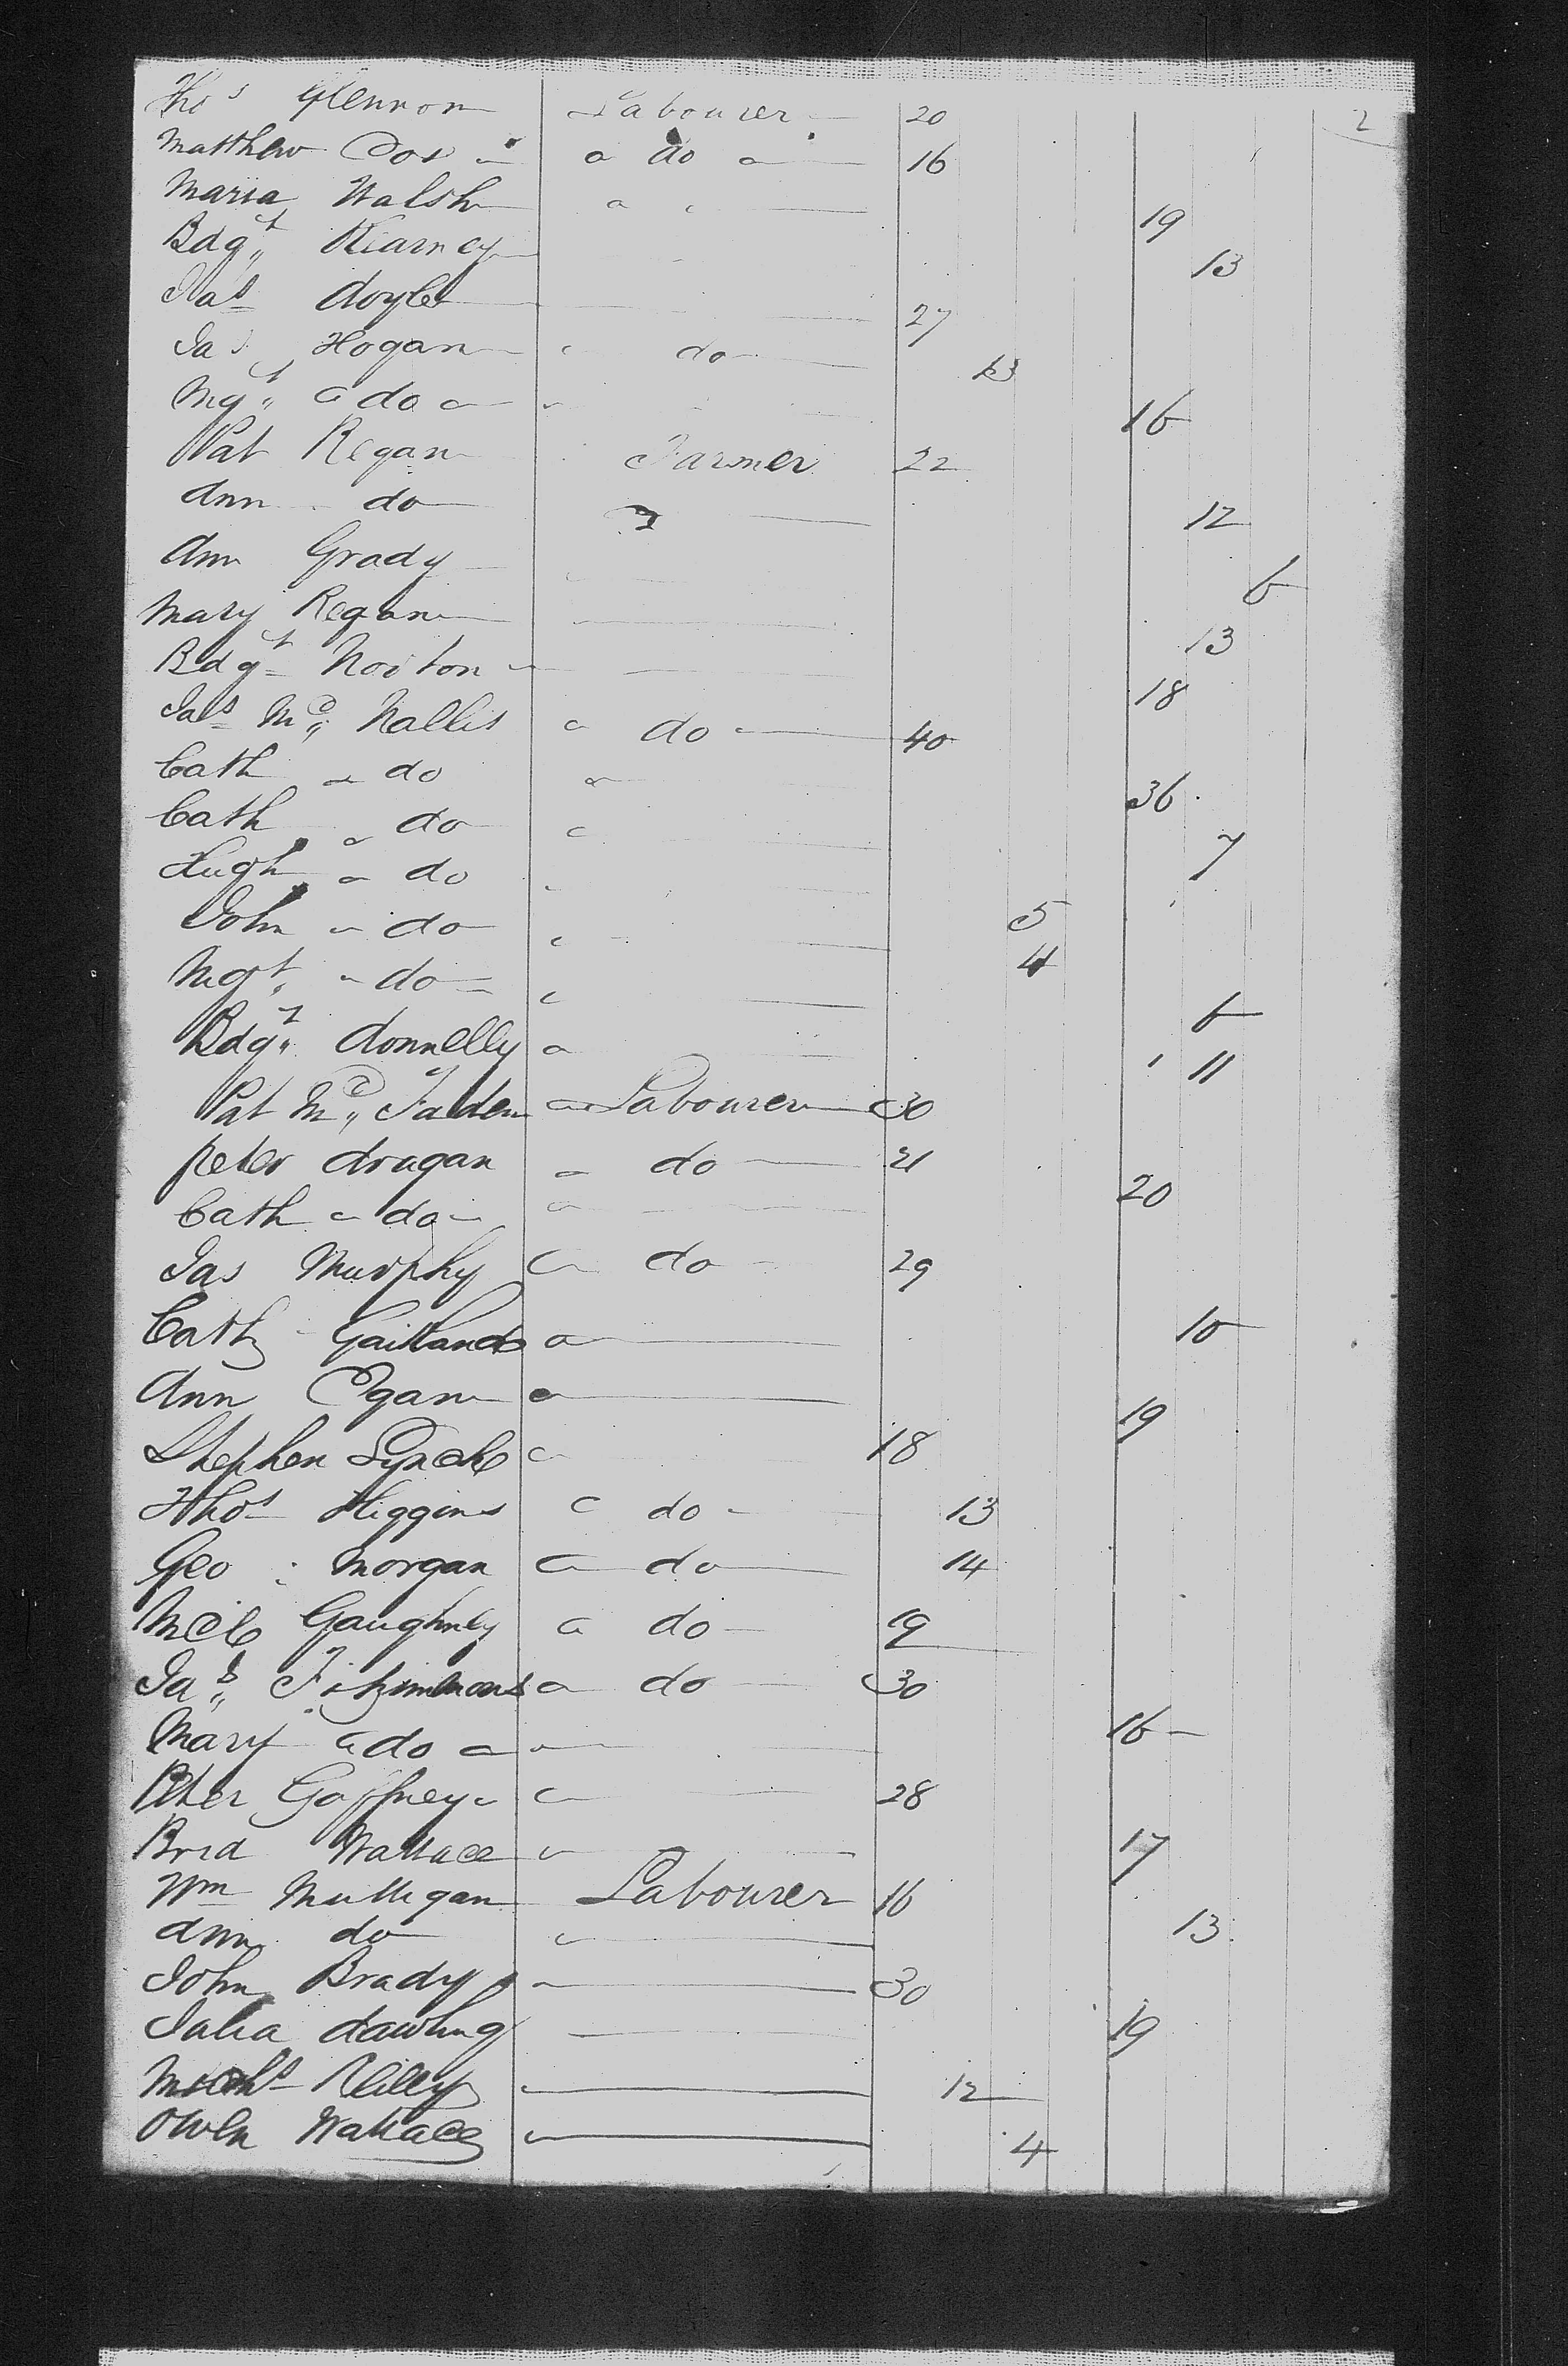 2
Thos Glennon Labourer 20
Matthew Cox " do " 16
Maria Walsh " " 19
Bdgt Kearney 13
Jas Doyle 27
Jas Hogan " do 13
Mgt " do " " 16
Pat Regan Farmer 22
Ann do 12
Ann Grady 6
Mary Regan 13
Bdgt Norton 18
Jas Mc Nallis " do 40
Cath " do " 36
Cath " do " 7
Hugh " do " 5
John " do " 4
Mgt " do " 6
Bdgt Donnelly " 11
Pat Mc Fadden " Labourer 30
Peter Drugan " do 21
Cath " do " " 20
Jas Murphy " do 29
Cath " 10
Ann Egan " 19
Stephen Lynch " 18
Thos Higgins " do 13
Geo : Morgan " do 14
Mcl Gaughney " do 19
Jas Fitzimmons " do 30
Mary " do " " 16
Peter Gaffney " " 28
Brid Wallace " 17
Wm Mulligan Labourer 16
Ann do " 13
John Brady " 30
Julia Dawling 19
Reilly " 12
Owen Wallace " 4